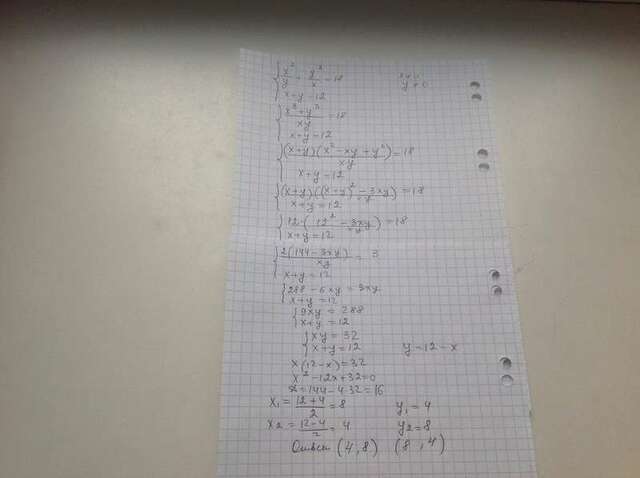 { x²/y + y²/x = 18    x ≠ 0
x+y=12    y ≠ 0
{ (x³+y³)/xy = 18
x+y=12
{ (x+y)(x²-xy+y²)/xy = 18
x+y=12
{ (x+y)((x+y)²-3xy)/xy = 18
x+y=12
{ 12·(12²-3xy)/xy = 18
x+y=12
{ 2(144-3xy)/xy = 3
x+y=12
{ 288-6xy=3xy
x+y=12
{ 9xy = 288
x+y=12
{ xy=32
x+y=12    y=12-x
x(12-x)=32
x²-12x+32=0
=144-4·32=16
x₁ = (12+4)/2 = 8    y₁=4
x₂ = (12-4)/2 = 4    y₂=8
Ответ (4,8) (8,4)